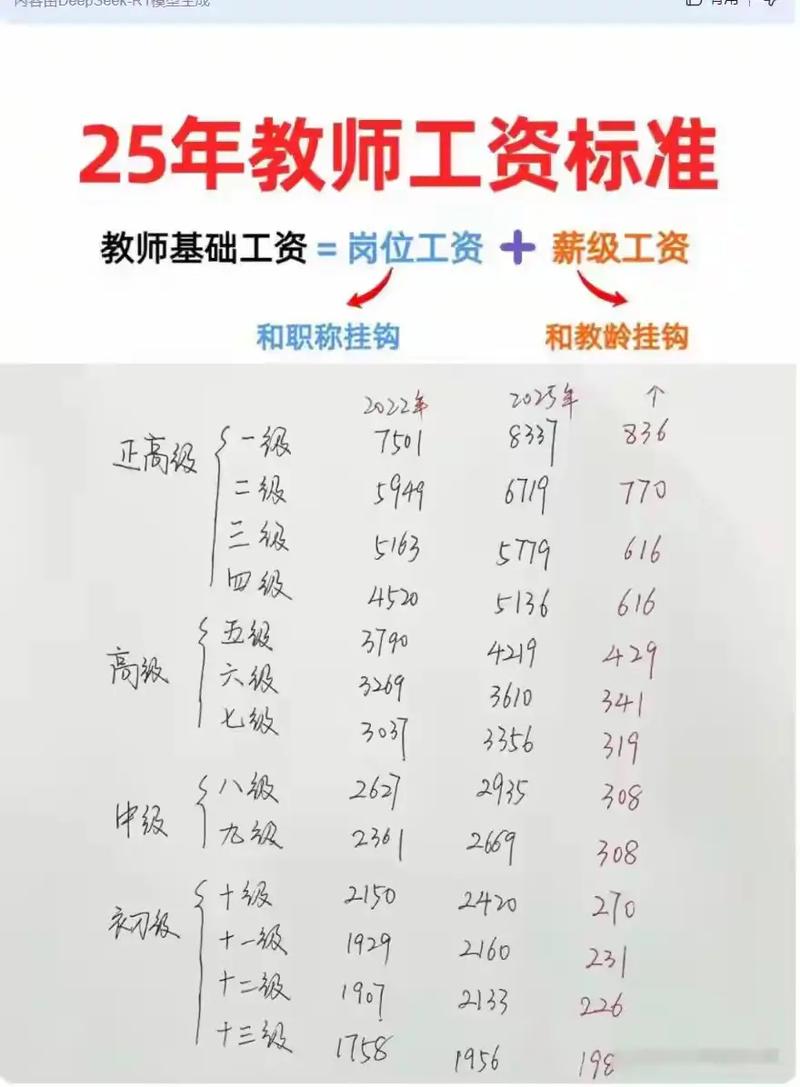 内容由DeepSeek-R1模型生成
有用
25年教师工资标准
教师基础工资=岗位工资+薪级工资
和职称挂钩 和教龄挂钩
2022年 2025年 ↑
正高级 一级 7501 8337 836
二级 5949 6719 770
三级 5163 5779 616
四级 4520 5136 616
高级 五级 3790 4219 429
六级 3269 3610 341
七级 3037 3356 319
中级 八级 2627 2935 308
九级 2361 2669 308
初级 十级 2150 2420 270
十一级 1929 2160 231
十二级 1907 2133 226
十三级 1758 1956 198